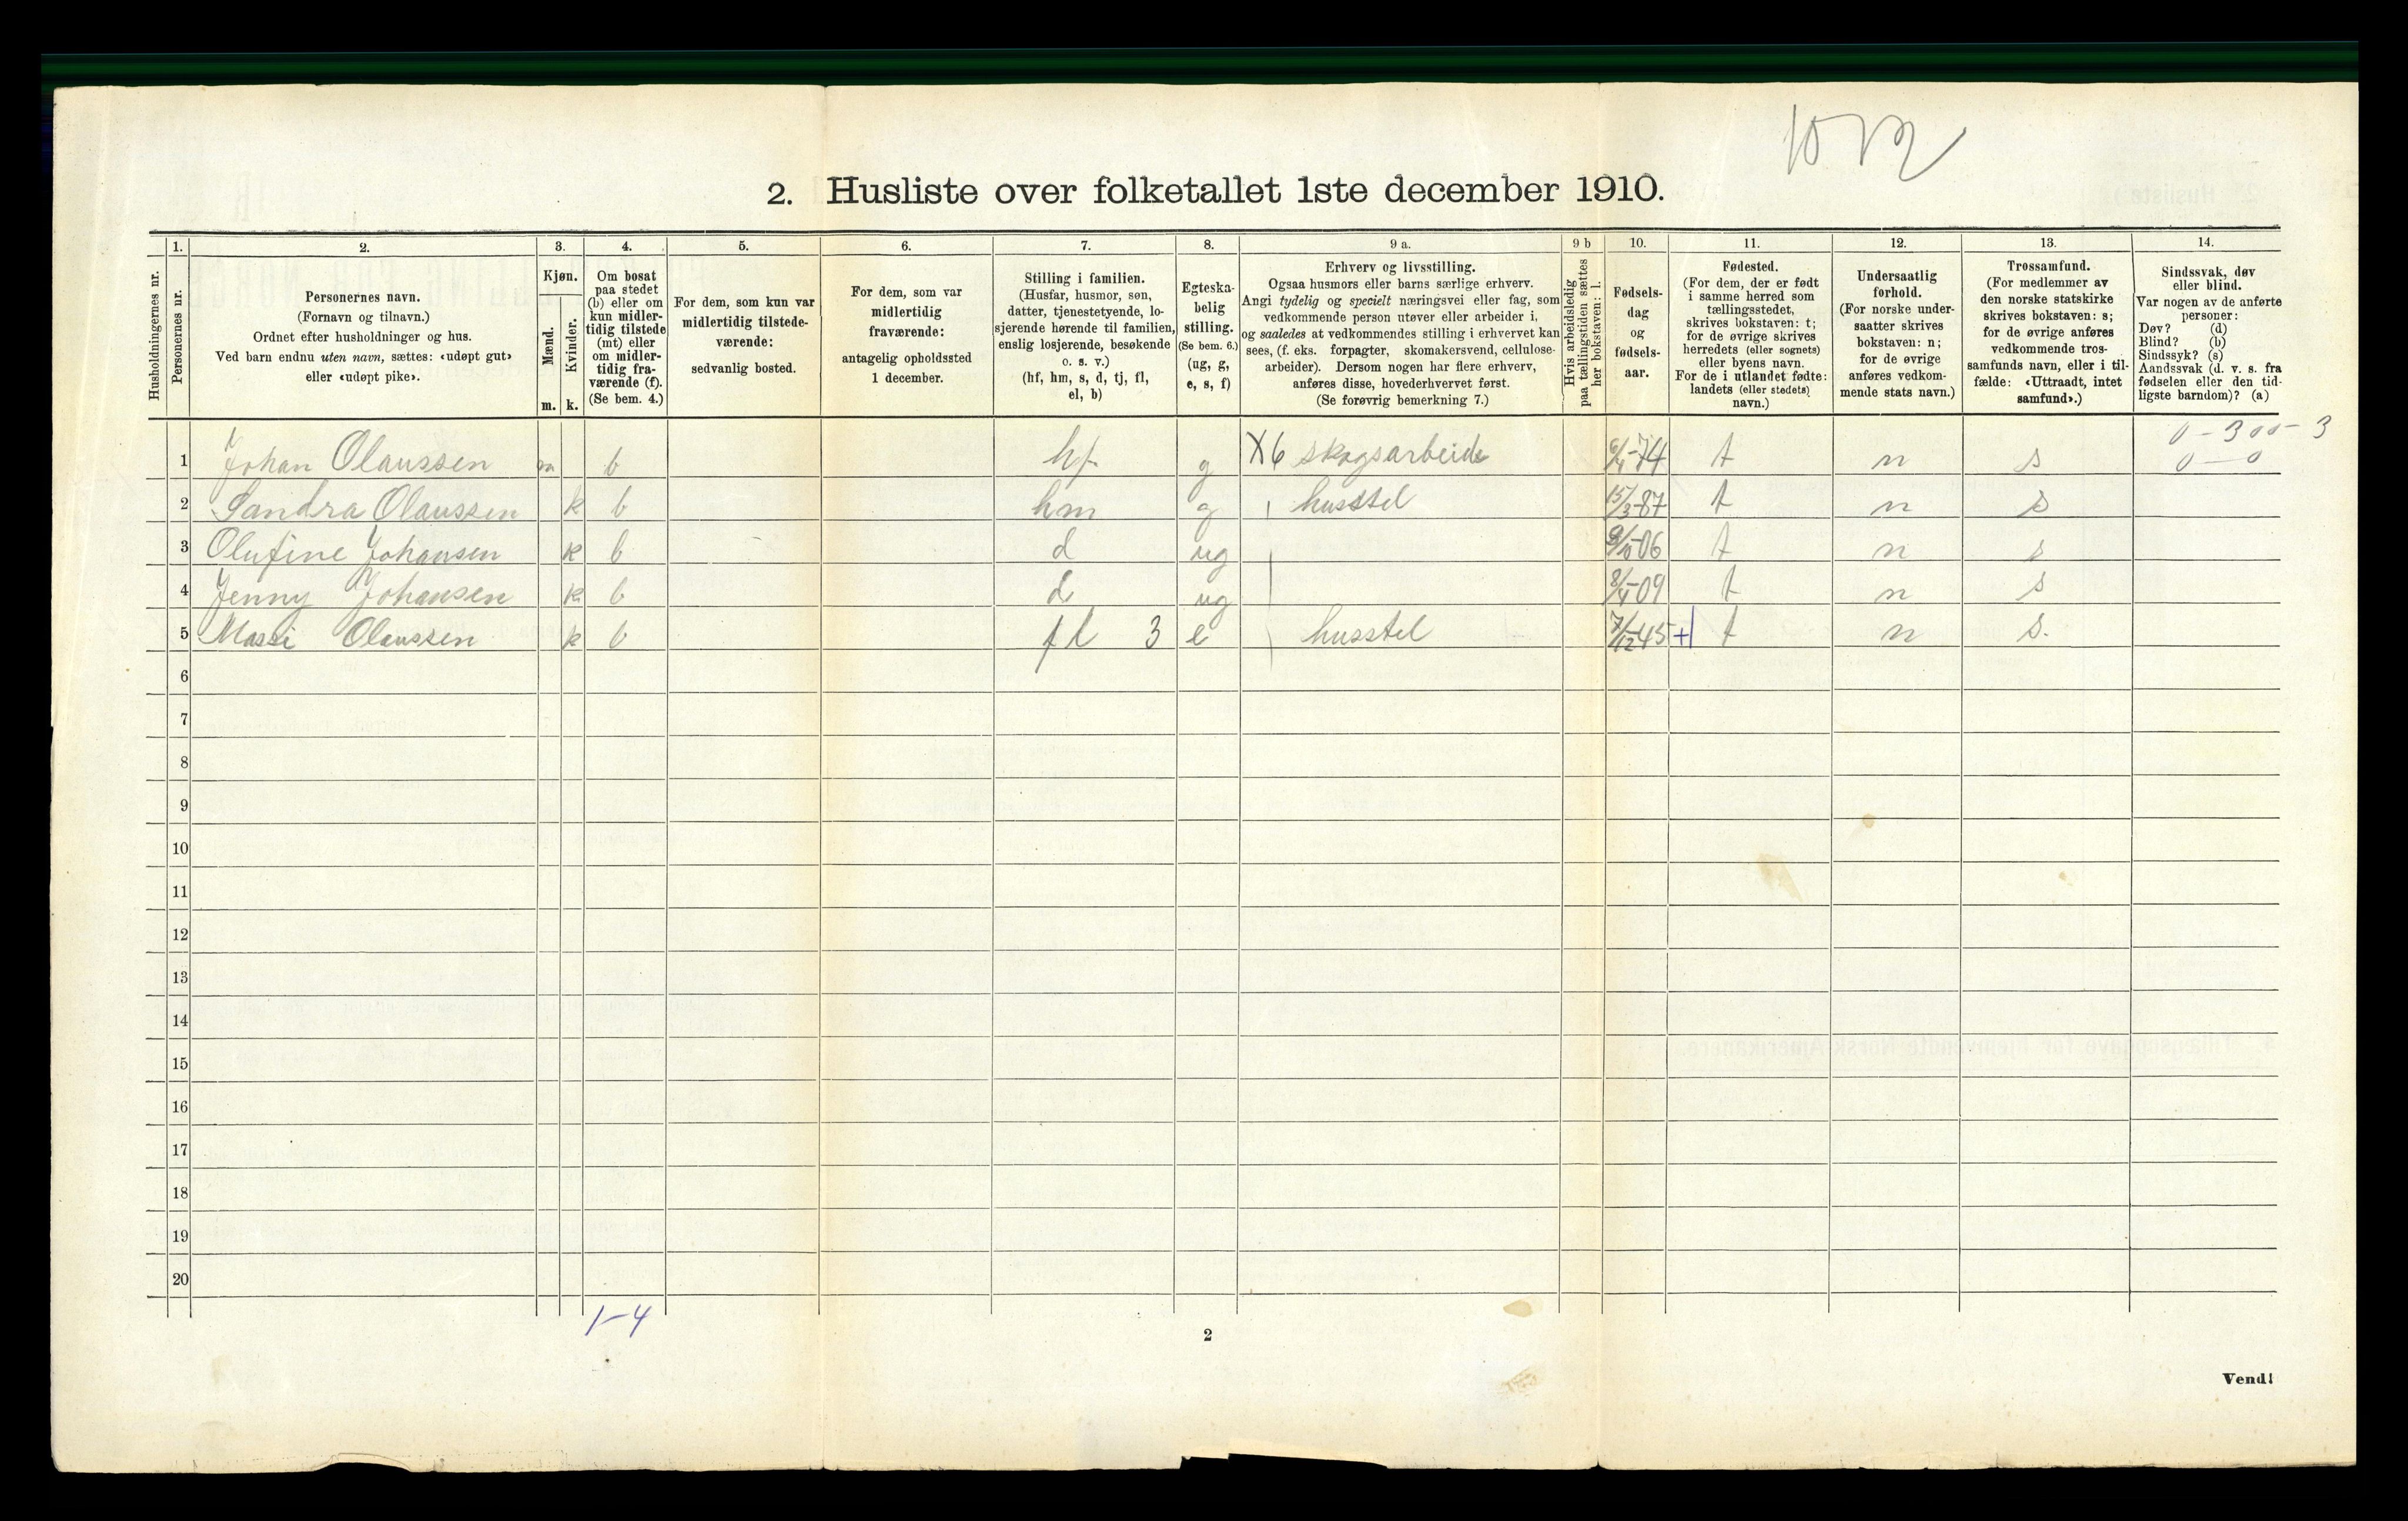 2. Husliste over folketallet 1ste december 1910.
Husholdningernes nr.
1.
Personernes nr.
2.
Personernes navn.
(Fornavn og tilnavn.)
Ordnet efter husholdninger og hus.
Ved barn endnu uten navn, sættes: «udøpt gut»
eller «udøpt pike».
3.
Kjøn.
Mænd.
Kvinder.
m. k.
4.
Om bosat
paa stedet
(b) eller om
kun midler-
tidig tilstede
(mt) eller
om midler-
tidig fra-
værende (f).
(Se bem. 4.)
5.
For dem, som kun var
midlertidig tilstede-
værende:
sedvanlig bosted.
6.
For dem, som var
midlertidig
fraværende:
antagelig opholdssted
1 december.
7.
Stilling i familien.
(Husfar, husmor, søn,
datter, tjenestetyende, lo-
sjerende hørende til familien,
enslig losjerende, besøkende
o. s. v.)
(hf, hm, s, d, tj, fl,
el, b)
8.
Egteska-
belig
stilling.
(Se bem. 6.)
(ug, g,
e, s, f)
9 a.
Erhverv og livsstilling.
Ogsaa husmors eller barns særlige erhverv.
Angi tydelig og specielt næringsvei eller fag, som
vedkommende person utøver eller arbeider i,
og saaledes at vedkommendes stilling i erhvervet kan
sees, (f. eks. forpagter, skomakersvend, cellulose-
arbeider). Dersom nogen har flere erhverv,
anføres disse, hovederhvervet først.
(Se forøvrig bemerkning 7.)
9 b
Hvis arbeidsledig
paa tællingstiden sættes
her bokstaven: l.
10.
Fødsels-
dag
og
fødsels-
aar.
11.
Fødested.
(For dem, der er født
i samme herred som
tællingsstedet,
skrives bokstaven: t;
for de øvrige skrives
herredets (eller sognets)
eller byens navn.
For de i utlandet fødte:
landets (eller stedets)
navn.)
12.
Undersaatlig
forhold.
(For norske under-
saatter skrives
bokstaven: n;
for de øvrige
anføres vedkom-
mende stats navn.)
13.
Trossamfund.
(For medlemmer av
den norske statskirke
skrives bokstaven: s;
for de øvrige anføres
vedkommende tros-
samfunds navn, eller i til-
fælde: «Uttraadt, intet
samfund».)
14.
Sindssvak, døv
eller blind.
Var nogen av de anførte
personer:
Døv? (d)
Blind? (b)
Sindssyk? (s)
Aandssvak (d. v. s. fra
fødselen eller den tid-
ligste barndom)? (a)
1 Johan Olaussen m b hf g X6 skogsarbeide -74 t n s 0 - 0
2 Sandra Olaussen k b hm g husstel 15/3-87 t n s
3 Olufine Johansen k b d ug 9/10-06 t n s
4 Jenny Johansen k b d ug t n s
5 Massi Olaussen k b fl 3 e husstel 7/12-45 + t n s.
6
7
8
9
10
11
12
13
14
15
16
17
18
19
20
1-4
2
Vend!